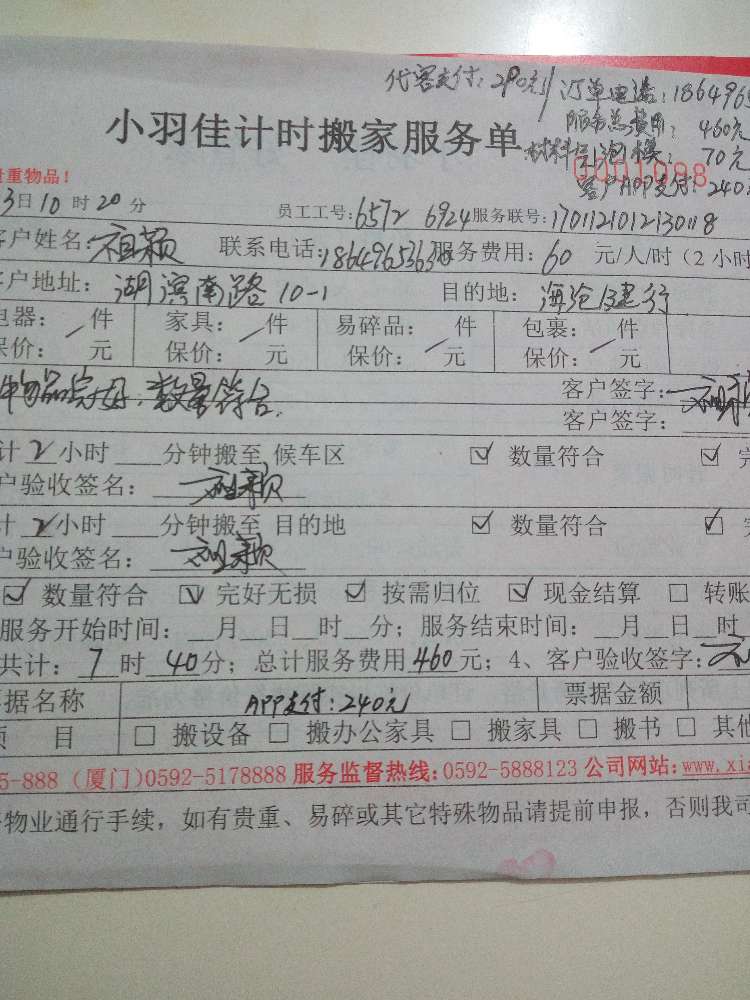 代客支付:290元 订单电话:186496
服务总费用:460元
小羽佳计时搬家服务单
材料气泡膜:70元
0001098
客户APP支付:240
贵重物品!
3日10时20分
员工工号:6572 6924 服务联号:170112101213018
客户姓名:祖颖 联系电话:18649653636 服务费用:60 元/人/时(2小时
客户地址:湖滨南路10-1 目的地:海沧建行
电器: 件 家具: 件 易碎品: 件 包裹: 件
保价: 元 保价: 元 保价: 元 保价: 元
物品完好,数量符合. 客户签字:祖颖
客户签字:
计2小时 分钟搬至 候车区 ☑ 数量符合 ☑ 完
户验收签名:祖颖
计2小时 分钟搬至 目的地 ☑ 数量符合 ☑ 完
户验收签名:祖颖
☑ 数量符合 ☑ 完好无损 ☑ 按需归位 ☑ 现金结算 □ 转账
服务开始时间: 月 日 时 分;服务结束时间: 月 日 时
共计:7时40分;总计服务费用460元;4、客户验收签字:祖
票据名称 APP支付:240元 票据金额
项 目 □ 搬设备 □ 搬办公家具 □ 搬家具 □ 搬书 □ 其他
5-888 (厦门)0592-5178888 服务监督热线:0592-5888123 公司网站:www.xia
物业通行手续,如有贵重、易碎或其它特殊物品请提前申报,否则我司